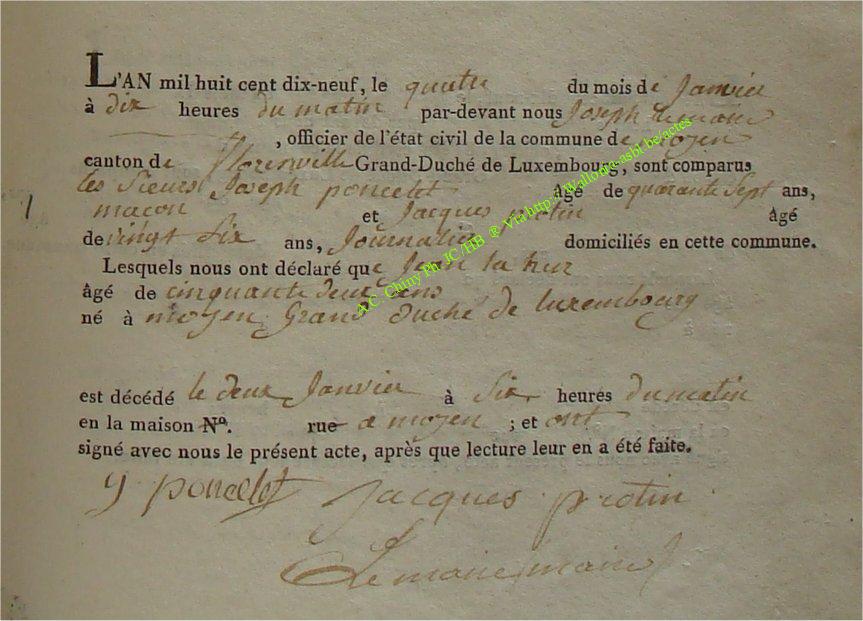 L'AN mil huit cent dix-neuf, le quatre du mois de Janvier
à dix heures du matin par-devant nous Joseph Lemaire
, officier de l'état civil de la commune de moyen
canton de florenville Grand-Duché de Luxembourg, sont comparus
les Sieurs Joseph poncelet âgé de quarante Sept ans,
1 macon et Jacques protin âgé
de vingt Six ans, Journalier domiciliés en cette commune.
Lesquels nous ont déclaré que Jean
âgé de cinquante deux ans
né à moyen Grand duché de luxembourg
est décédé le deux Janvier à Six heures du matin
en la maison Nº. rue a moyen ; et ont
signé avec nous le présent acte, après que lecture leur en a été faite.
poncelet Jacques protin
Lemaire, maire
A.C Chiny Ph JC /HB ® Via http://Wallonia-asbl.be/actes